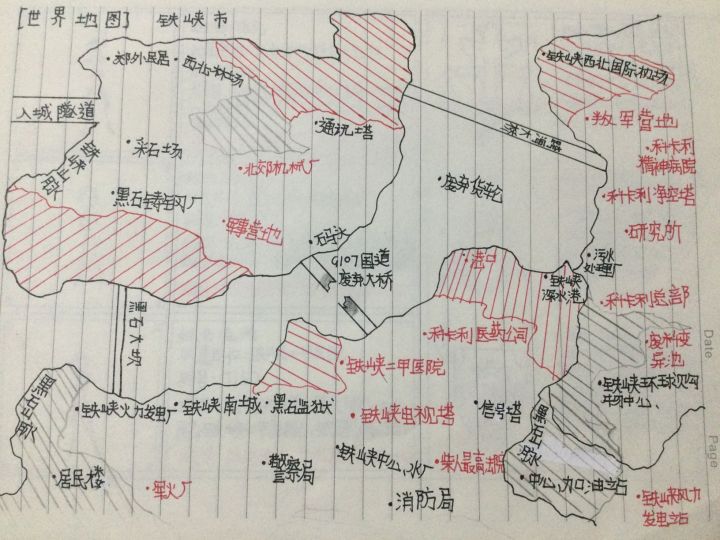 [世界地图] 铁峡市
郊外民居
西北林场
铁峡西北国际机场
入城隧道
采石场
通讯塔
叛军营地
科卡利
精神病院
北郊机械厂
废弃货轮
科卡利净空塔
黑石铸钢厂
军事营地
码头
研究所
G107国道
废弃大桥
港口
污水
处理厂
铁峡
深水港
科卡利总部
黑石大坝
科卡利医药公司
废料变
异池
铁峡二甲医院
铁峡环球购
物中心
铁峡火力发电厂
铁峡南土城
黑石监狱
铁峡电视塔
信号塔
黑石
居民楼
星火厂
警察局
铁峡中心水厂
柴人最高法院
中心加油站
消防局
铁峡风力
发电站
Date
Page